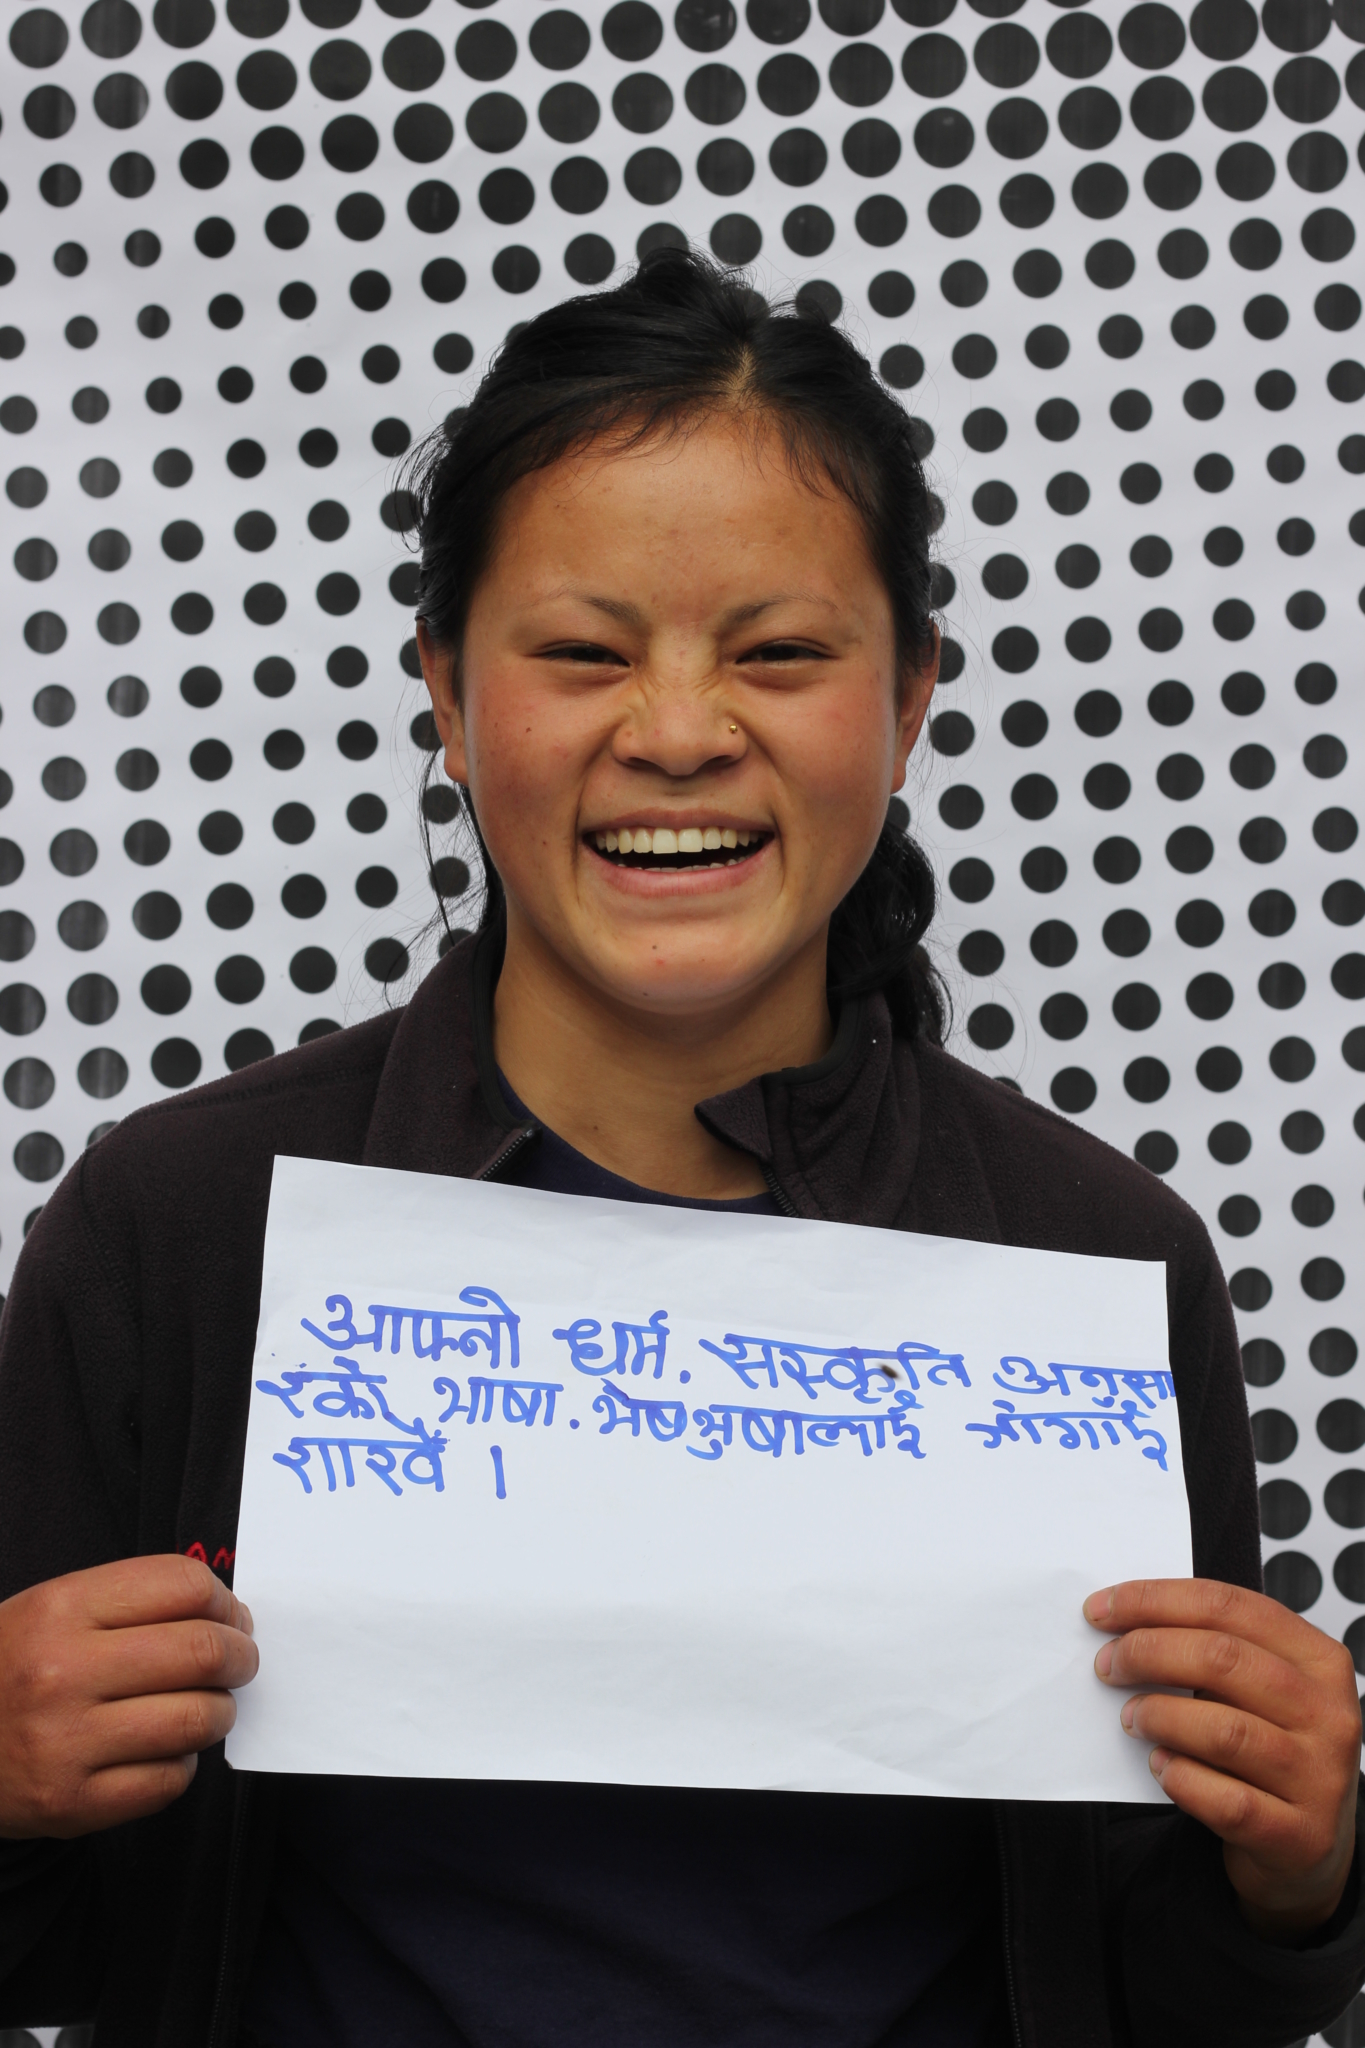 आफ्नो धर्म. सस्कृति अनुसा
रको भाषा. भेषभुषालाई जोगाई
राखौं ।